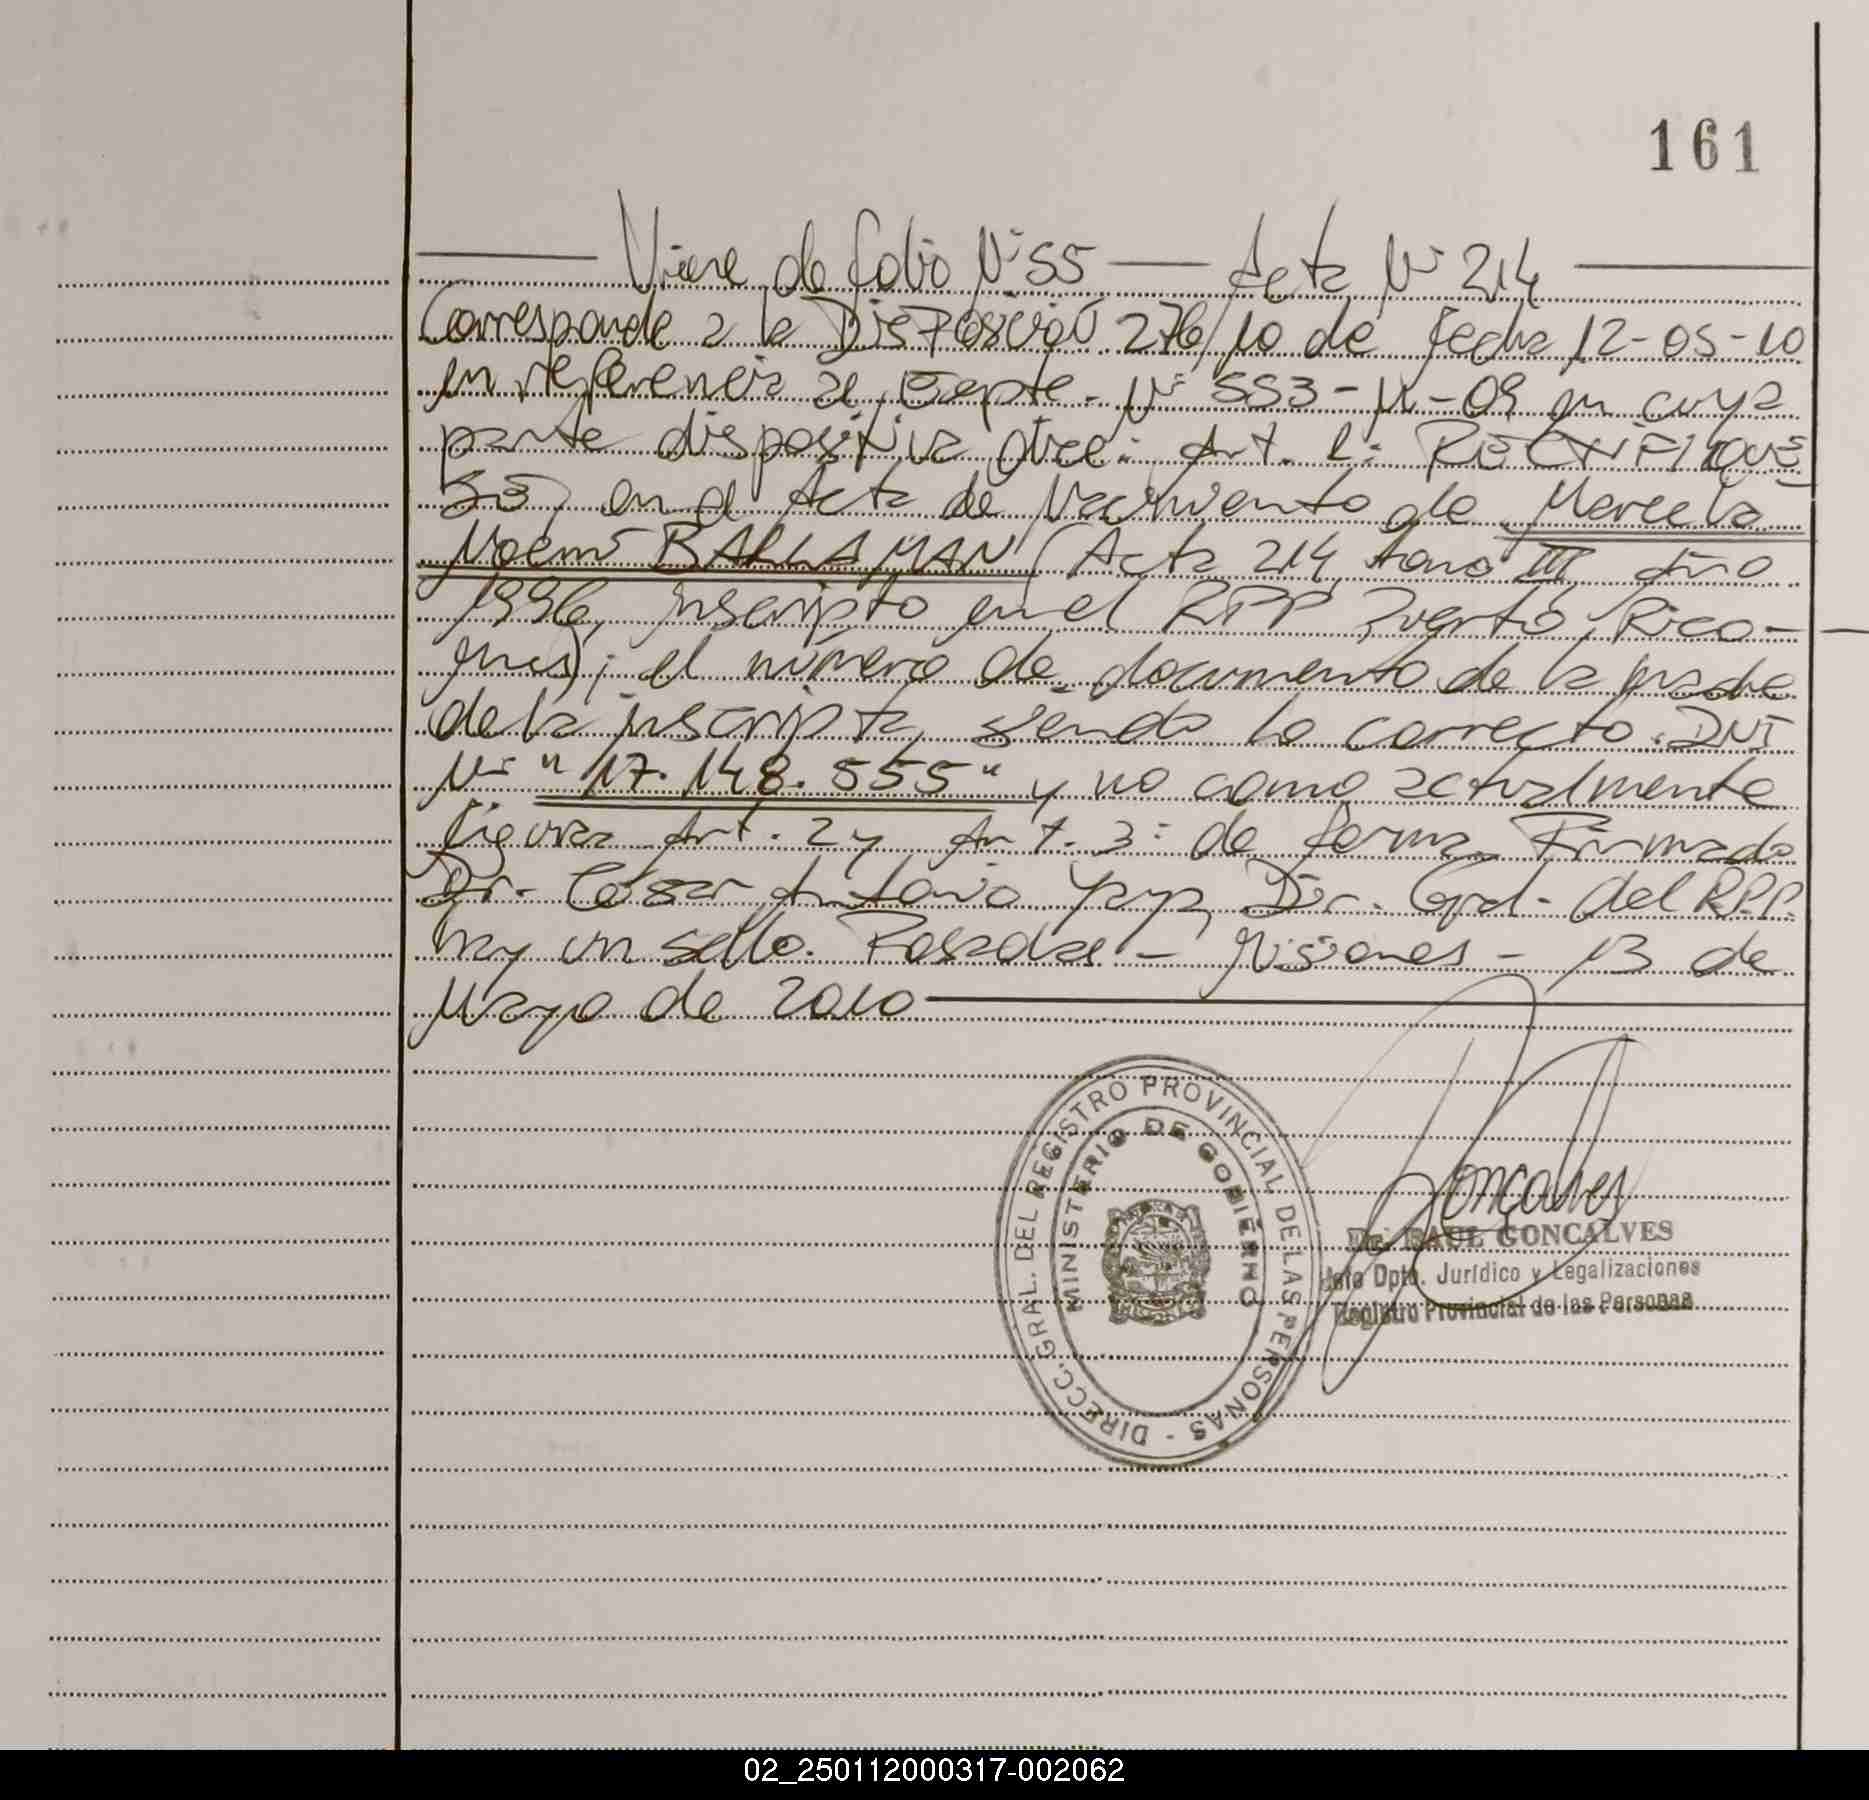 161
Viene de folio Nº 55 — Acta Nº 214
Corresponde a la Disposición 276/10 de fecha 12-05-10
en referencia al Expte. Nº 553-M-09 en cuya
parte dispositiva dice: Art. 1: RECTIFIQUE
SE, en el Acta de Nacimiento de Marcela
Noemí BALLAMAN (Acta 214, tomo III año
1996, inscripto en el RPP Puerto Rico-
Mnes), el número de documento de la madre
de la inscripta, siendo lo correcto: DNI
Nº "17.148.555" y no como actualmente
figura Art. 2 y Art. 3: de forma. Firmado
Dr. César Antonio Dir. Gral. del R.P.P.
hay un sello. Posadas - Misiones - 13 de
Mayo de 2010
DIRECC. GRAL. DEL REGISTRO PROVINCIAL DE LAS PERSONAS -
MINISTERIO DE GOBIERNO
Goncalves
Dr. RAUL GONCALVES
Jefe Dpto. Jurídico y Legalizaciones
Registro Provincial de las Personas
02_250112000317-002062